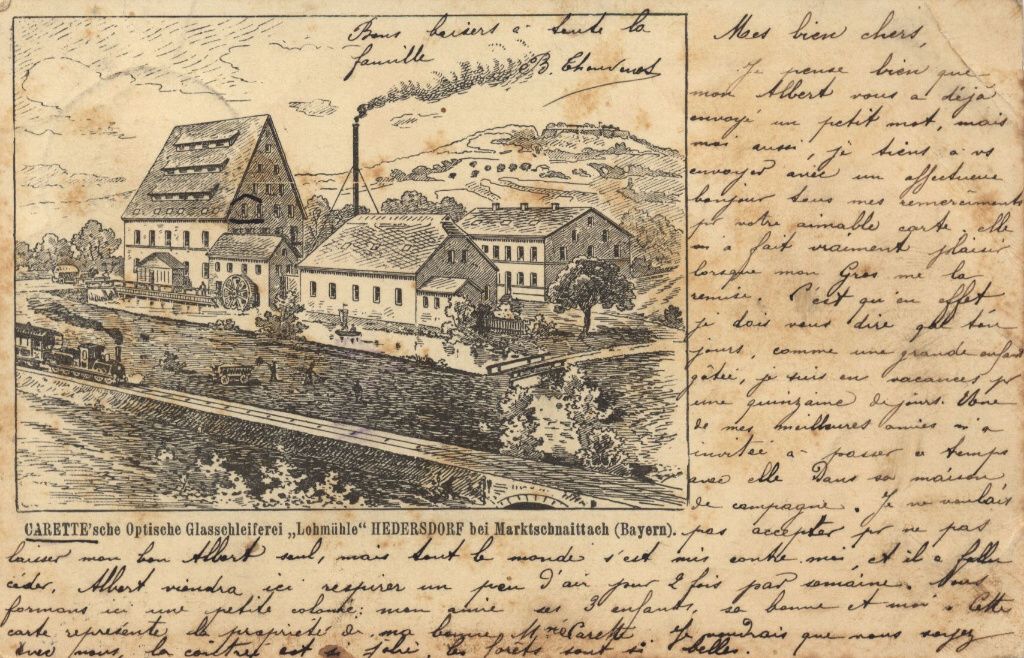 Bons baisers à toute la
famille
Mes bien chers,
Je pense bien que
mon Albert vous a déjà
envoyé un petit mot, mais
moi aussi, je tiens à vs
envoyer avec un affectueux
bonjour tous mes remerciments
pr votre aimable carte, elle
m'a fait vraiment plaisir
lorsque mon Gros me la
remise. C'est qu'en effet
je dois vous dire que tou
jours, comme une grande enfant
gâtée, je suis en vacances pr
une quinzaine de jours. Une
de mes meilleures amies m'a
invitée à passer ce temps
avec elle Dans sa maison
de campagne. Je ne voulais
CARETTE'sche Optische Glasschleiferei „Lohmühle“ HEDERSDORF bei Marktschnaittach (Bayern).
pas accepter pr ne pas
laisser mon bon Albert seul, mais tout le monde s'est mis contre moi, et il a fallu
céder. Albert viendra ici respirer un peu d'air pur 2 fois par semaine. Nous
formons ici une petite colonie: mon amie ses 3 enfants, sa bonne et moi. Cette
carte représente la propriété de ma bonne Mme Carette. Je voudrais que vous soyez
avec nous, la contrée est si jolie, les forêts sont si belles.